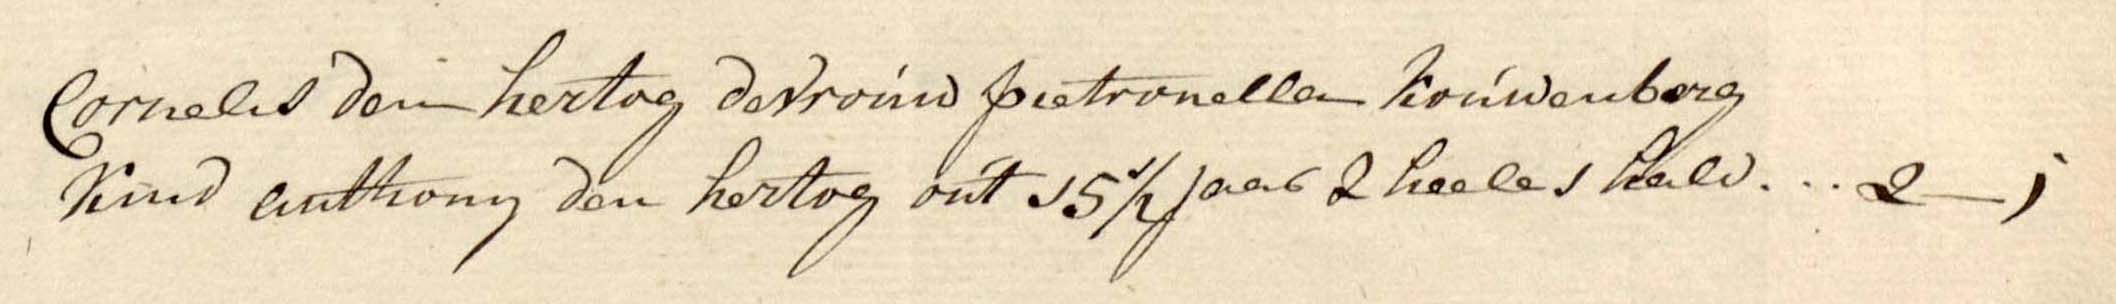 Cornelis den hertog de vrouw pietronella Kouwenberg
Kind anthony den hertog out 15 1/2 jaar 2 heele 1 half . . . . 2 — 1